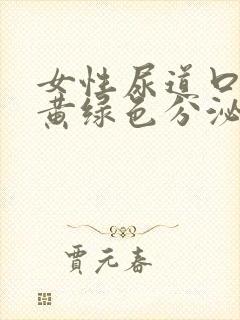 女性尿道口
黄绿色分泌
贾元春